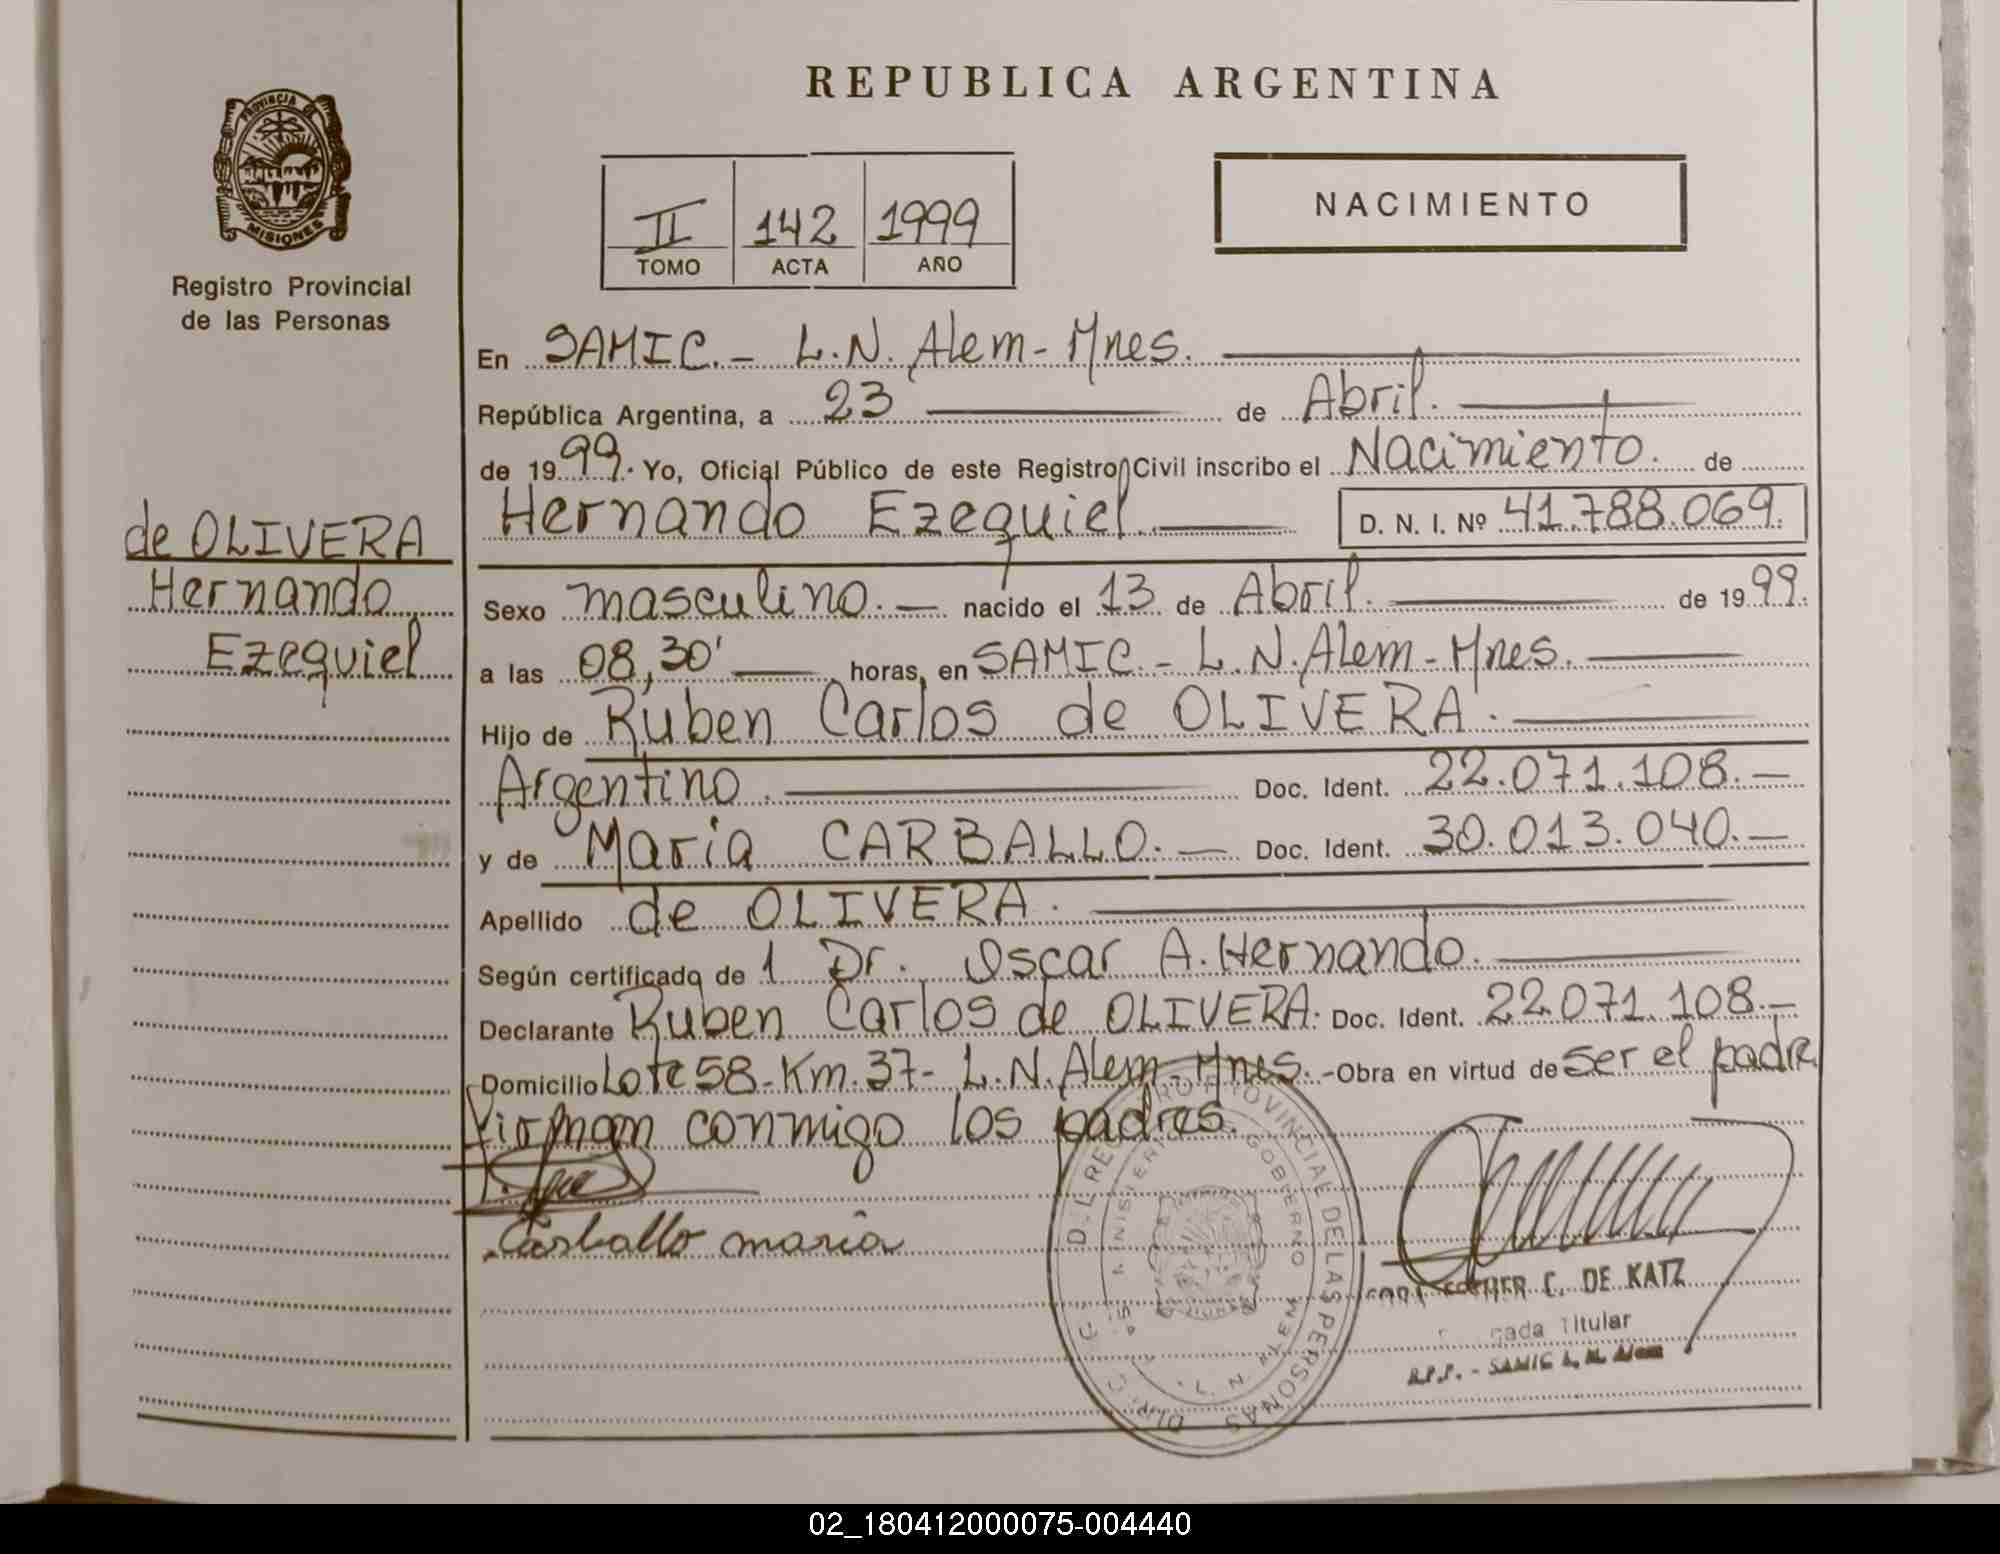 REPUBLICA ARGENTINA
PROVINCIA DE
MISIONES
Registro Provincial
de las Personas
II 142 1999
TOMO ACTA AÑO
NACIMIENTO
de OLIVERA
Hernando
Ezequiel
En SAMIC.- L.N. Alem- Mnes.
República Argentina, a 23 de Abril.
de 1999. Yo, Oficial Público de este Registro Civil inscribo el Nacimiento. de
Hernando Ezequiel. D. N. I. Nº 41.788.069.
Sexo masculino.- nacido el 13 de Abril. de 1999.
a las 08,30' horas, en SAMIC.- L.N. Alem- Mnes.
Hijo de Ruben Carlos de OLIVERA.
Argentino. Doc. Ident. 22.071.108.-
y de Maria CARBALLO.- Doc. Ident. 30.013.040.-
Apellido de OLIVERA.
Según certificado de 1 Dr. Oscar A. Hernando.
Declarante Ruben Carlos de OLIVERA. Doc. Ident. 22.071.108.-
Domicilio Lote 58-Km.37- L.N. Alem- Mnes. -Obra en virtud de ser el padre
Firman conmigo los padres.
Carballo maria
DEL REGISTRO PROVINCIAL DE LAS PERSONAS
MINISTERIO GOBIERNO
C. DE KATZ
Titular
R.P.P. - SAMIC L. N. Alem
02_180412000075-004440